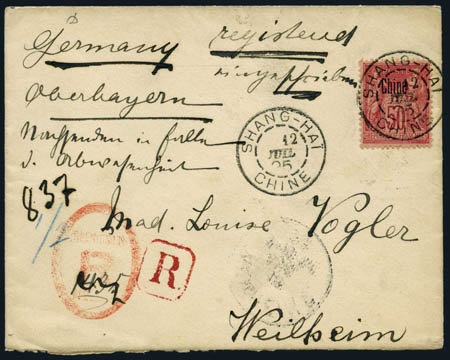 Germany registered
eingeschrieben
Oberbayern
Nachsenden im Falle
d. Abwesenheit
837
Mad. Louise Vogler
Weilheim
SHANG-HAI
12
JUIL
05
CHINE
Chine
50c
SHANG-HAI
12
JUIL
05
CHINE
R
R